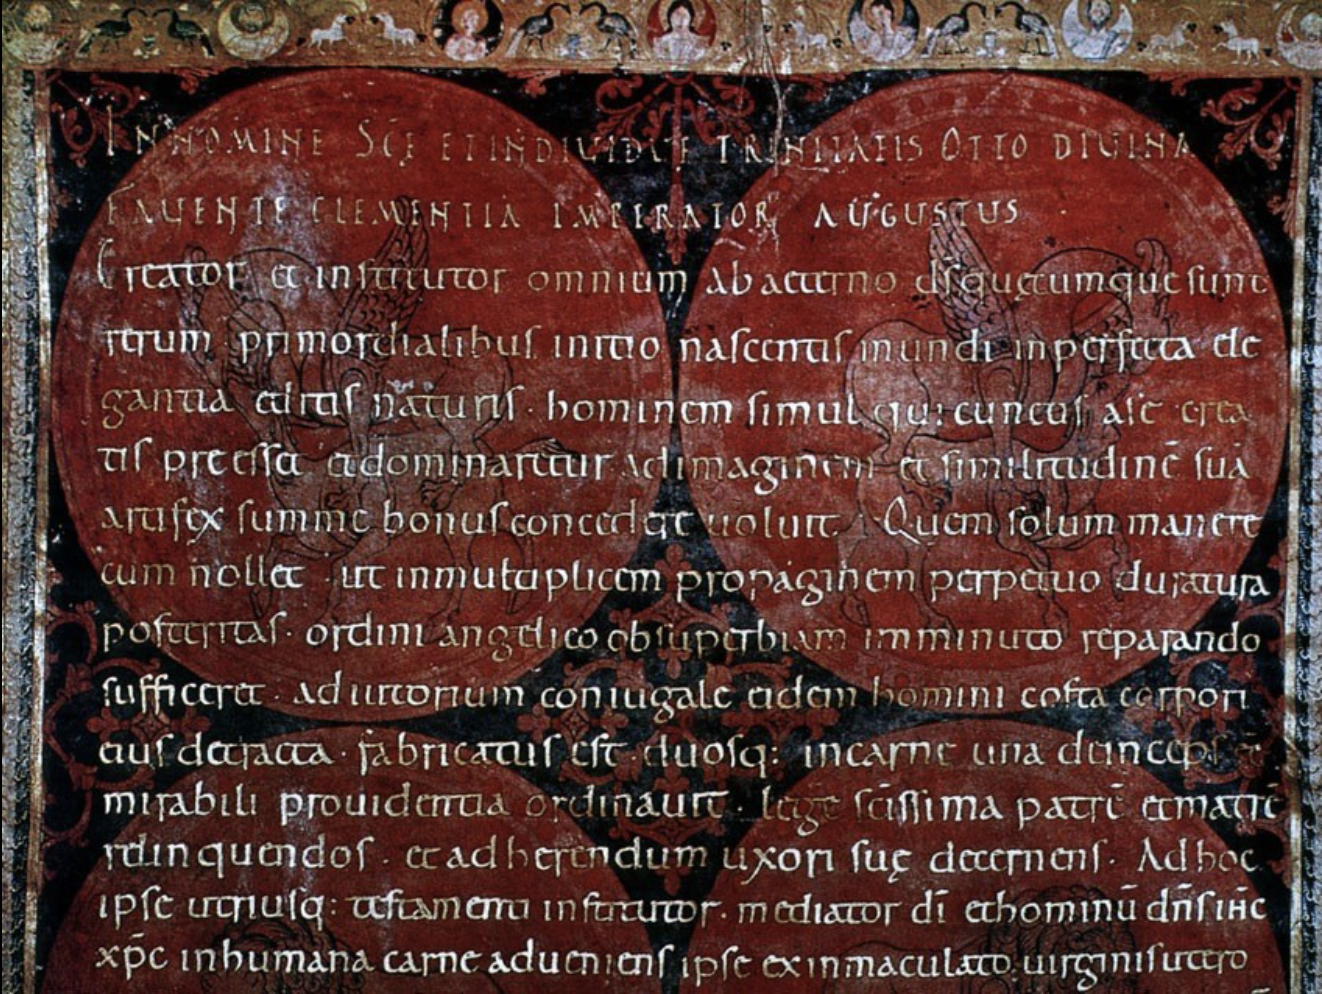 IN NOMINE SCE ET INDIVIDUE TRINITATIS OTTO DIVINA
FAVENTE CLEMENTIA IMPERATOR AUGUSTUS
Creator et institutor omnium ab aeterno ds quęcumque sunt
rerum primordialibus initio nascentis mundi in perfecta ele
gantia editis naturis · hominem simul qui cunctis a se crea
tis preesset et dominaretur ad imaginem et similitudinē suā
artifex summe bonus condere uoluit. Quem solum manere
cum nollet · ut in multiplicem propaginem perpetuo duratura
posteritas · ordini angelico ob superbiam imminuto reparando
sufficeret · adiutorium coniugale eidem homini costa corpori
eius detracta · fabricatus est · duosq: in carne una deinceps ēē
mirabili prouidentia ordinauit · lege scissima patrē et matrē
relinquendos · et adherendum uxori suę decernens · Ad hoc
ipse utriusq: testamenti institutor · mediator dī et hominū dn̄s ihc
xp̄c in humana carne adueniens ipse ex inmaculato uirginis utero